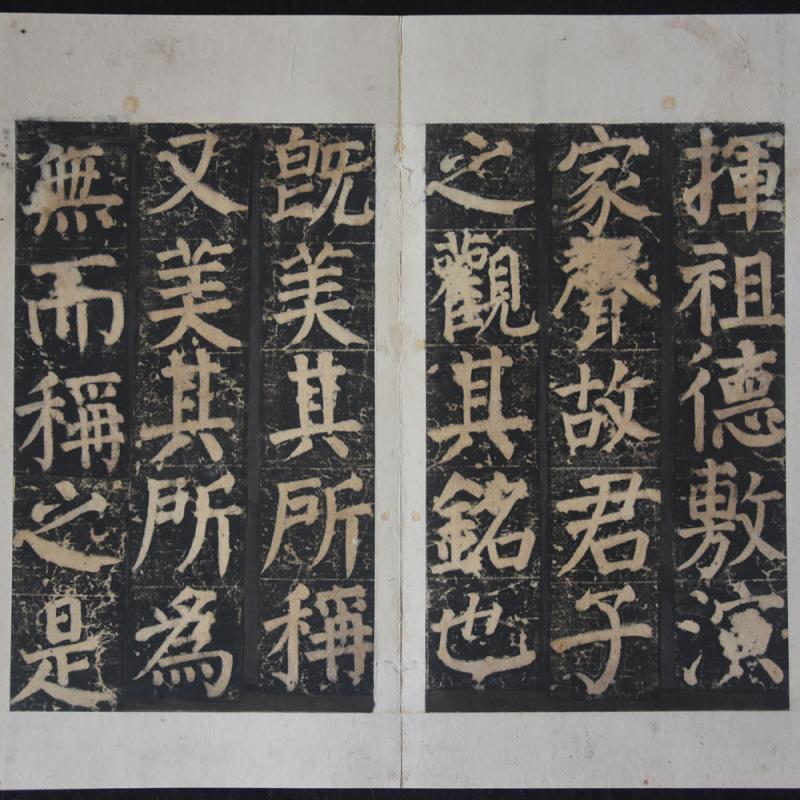 揮祖德敷演
家聲故君子
之觀其銘也
旣美其所稱
又美其所爲
無而稱之是